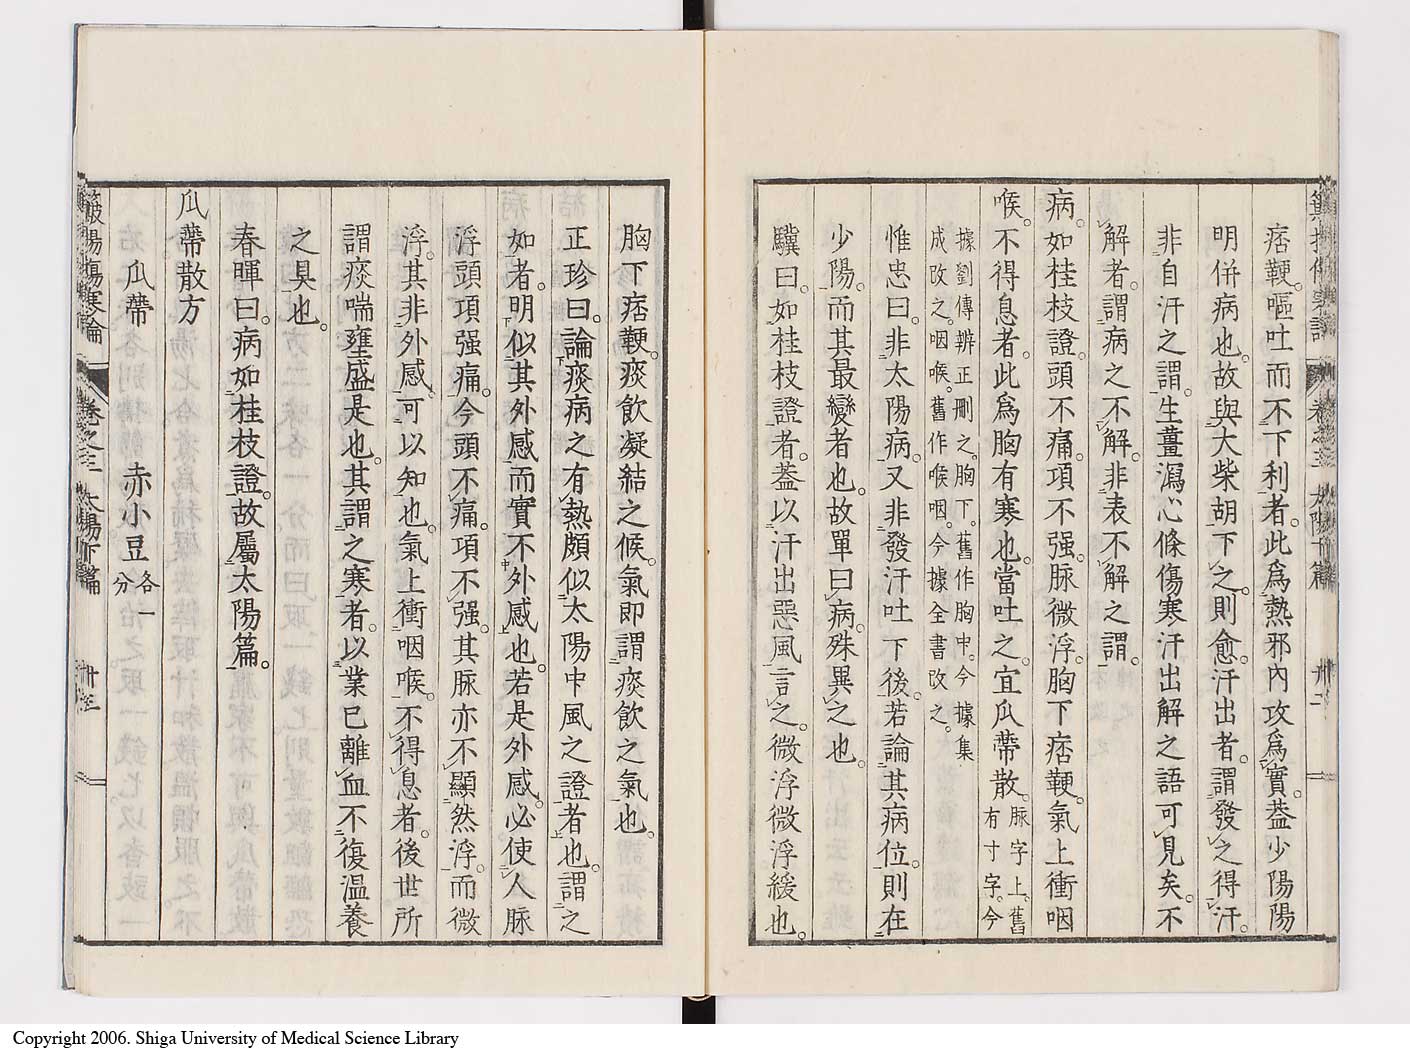 痞鞕。嘔吐而不下利者。此爲熱邪內攻爲實。蓋少陽陽
明併病也。故與大柴胡下之。則愈。汗出者。謂發之得汗。
非自汗之謂。生薑瀉心條。傷寒汗出解之語可見矣。不
解者。謂病之不解。非表不解之謂。
病。如桂枝證。頭不痛。項不强。脉微浮。胸下痞鞕。氣上衝咽
喉。不得息者。此爲胸有寒也。當吐之。宜瓜蔕散。脉字上。舊有寸字。今
據劉傳辨正刪之。胸下。舊作胸中。今據集
成改之。咽喉。舊作喉咽。今據全書改之。
惟忠曰。非太陽病。又非發汗吐下後。若論其病位。則在
少陽。而其最變者也。故單曰病。殊異之也。
驥曰。如桂枝證者。蓋以汗出惡風言之。微浮微浮緩也。
胸下痞鞕。痰飲凝結之候。氣即謂痰飲之氣也。
正珍曰。論痰病之有熱頗似太陽中風之證者也。謂之
如者。明似其外感而實不外感也。若是外感。必使人脉
浮頭項强痛。今頭不痛。項不强。其脉亦不顯然浮。而微
浮。其非外感。可以知也。氣上衝咽喉。不得息者。後世所
謂痰喘壅盛是也。其謂之寒者。以業已離血不復溫養
之具也。
春暉曰。病如桂枝證。故屬太陽篇。
瓜蔕散方
瓜蔕 赤小豆各一分
卷之三 太陽下篇 卅三